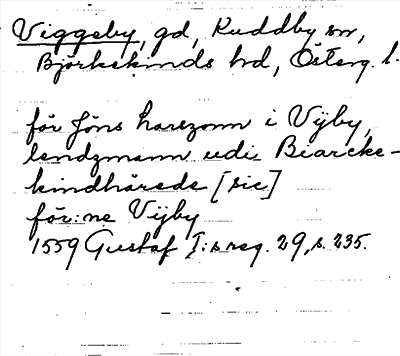 Viggeby, gd, Kuddby sn,
Björkekinds hd, Österg. l.
för Jöns harszonn i Vijby,
lendzmann udi Biarcke-
kindhärede [sic]
för:ne Vijby
1559 Gustaf I:s reg. 29, s. 235.